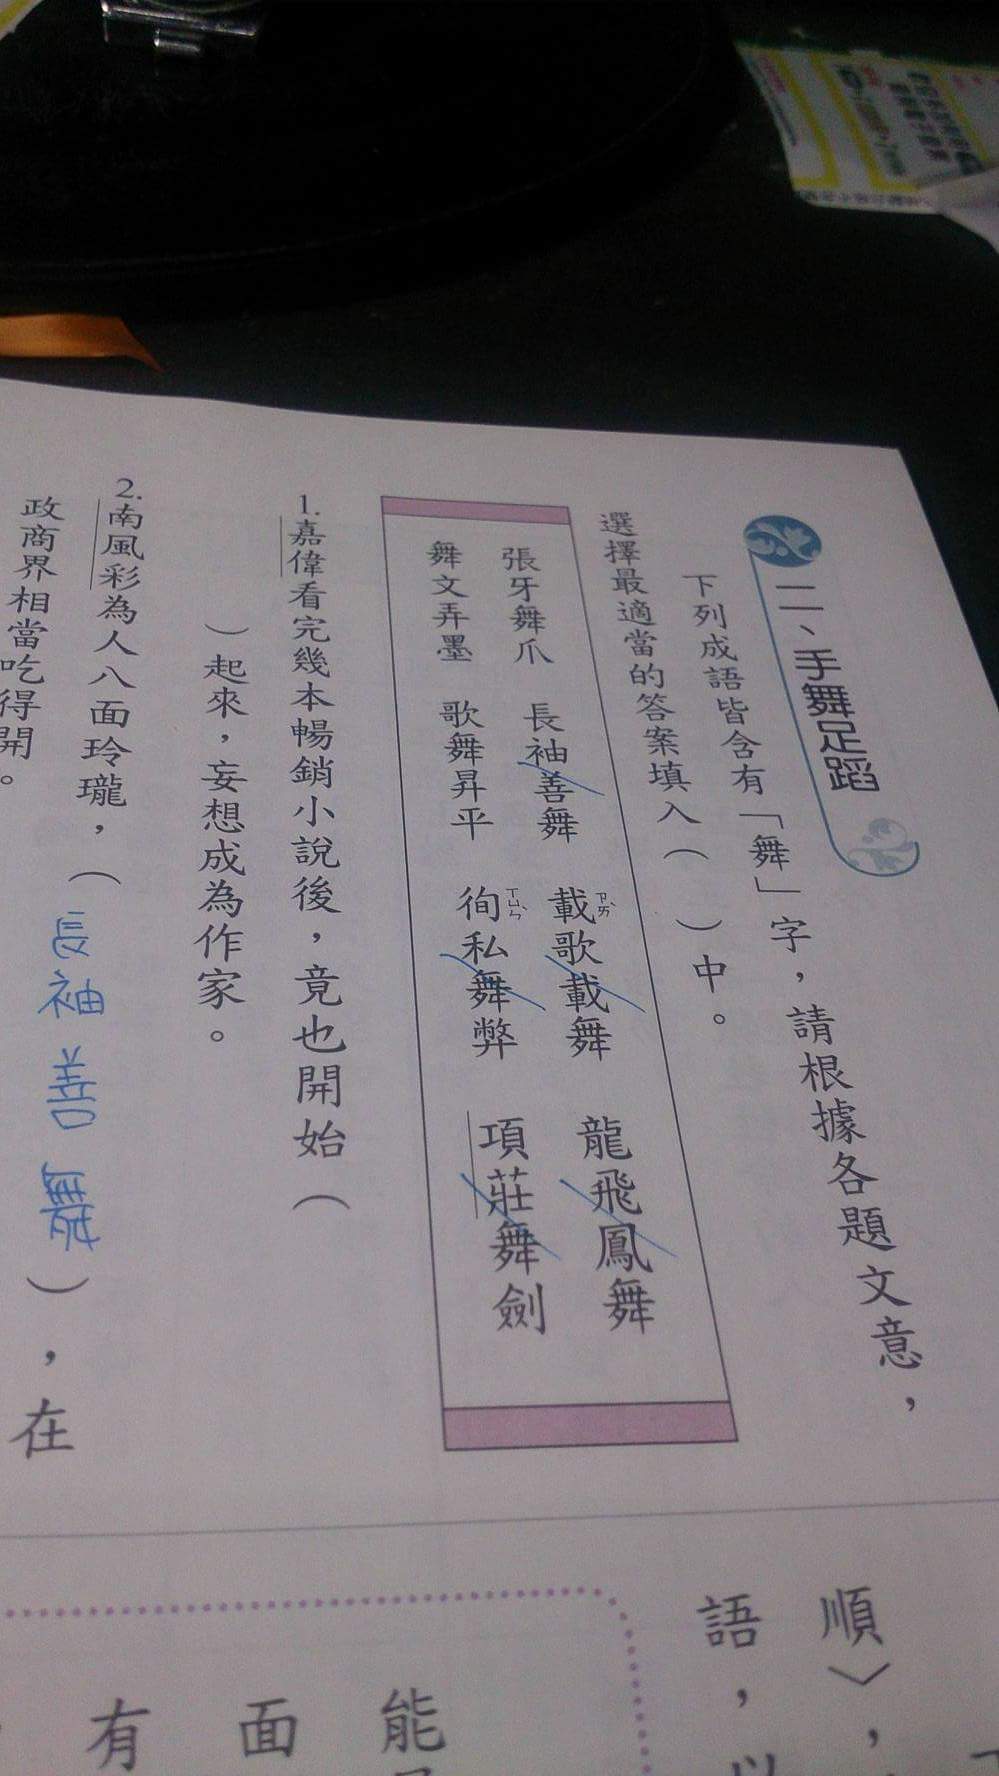 二、手舞足蹈
下列成語皆含有「舞」字，請根據各題文意，
選擇最適當的答案填入（　）中。
張牙舞爪　長袖善舞　載歌載舞　龍飛鳳舞
ㄗㄞˋ
舞文弄墨　歌舞昇平　徇私舞弊　項莊舞劍
ㄒㄩㄣˋ
1.嘉偉看完幾本暢銷小說後，竟也開始（
）起來，妄想成為作家。
2.南風彩為人八面玲瓏，（長袖善舞），在
政商界相當吃得開。
順〉，
語，以
能
面
有